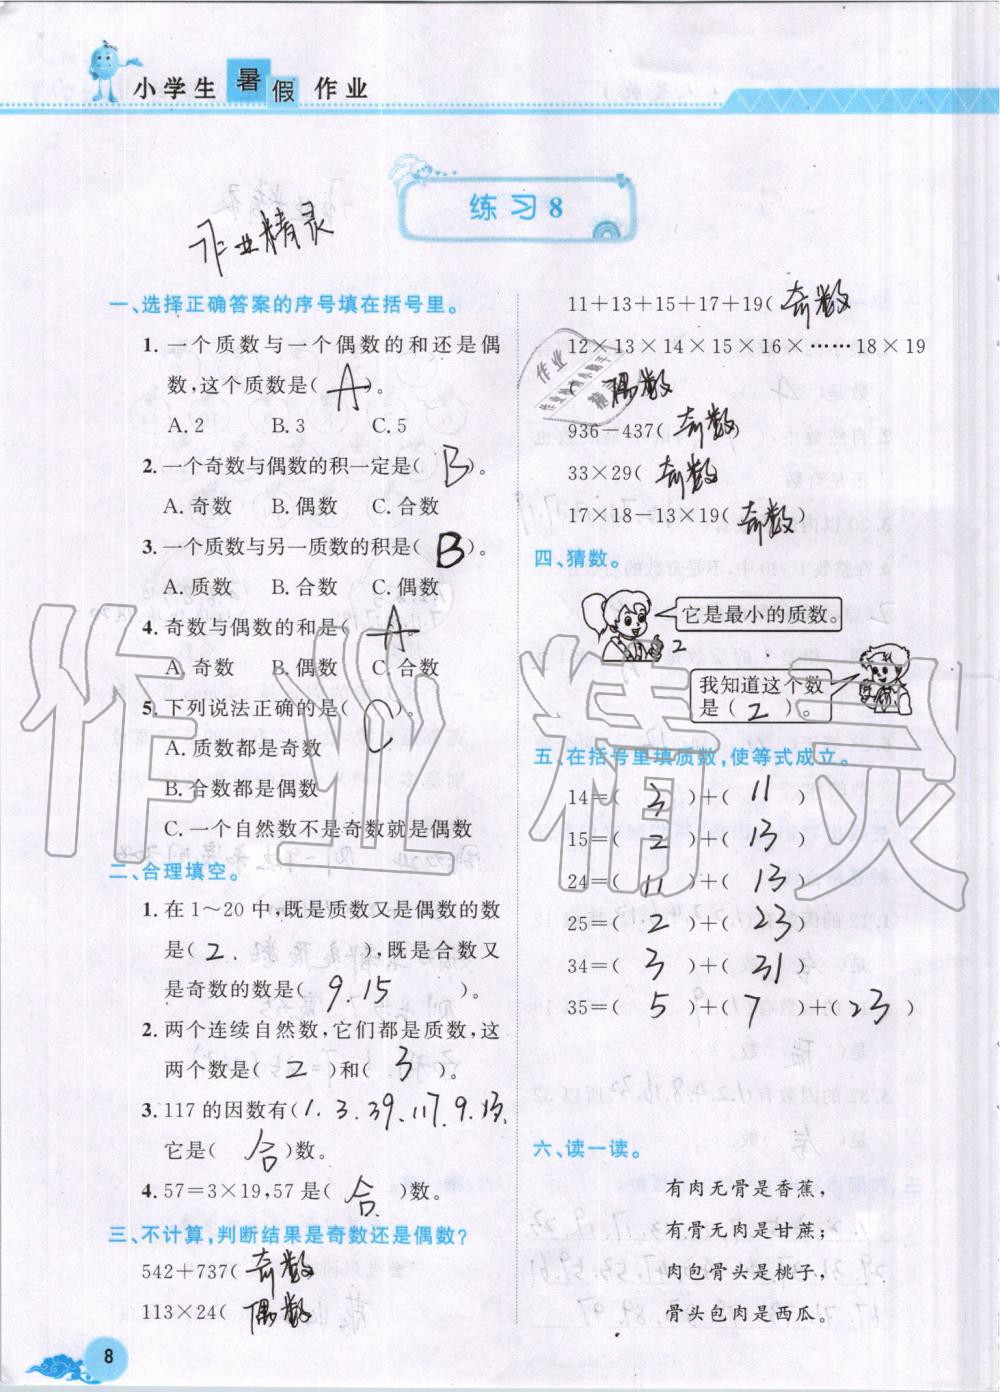 小学生暑假作业
练习8
作业精灵
一、选择正确答案的序号填在括号里。
1. 一个质数与一个偶数的和还是偶
数,这个质数是( A )。
A. 2 B. 3 C. 5
2. 一个奇数与偶数的积一定是( B )。
A. 奇数 B. 偶数 C. 合数
3. 一个质数与另一质数的积是( B )。
A. 质数 B. 合数 C. 偶数
4. 奇数与偶数的和是( A )
A. 奇数 B. 偶数 C. 合数
5. 下列说法正确的是( C )。
A. 质数都是奇数
B. 合数都是偶数
C. 一个自然数不是奇数就是偶数
二、合理填空。
1. 在1~20中,既是质数又是偶数的数
是( 2. ),既是合数又
是奇数的数是( 9.15 )。
2. 两个连续自然数,它们都是质数,这
两个数是( 2 )和( 3 )。
3. 117的因数有(1.3.39.117.9.13.
它是( 合 )数。
4. 57=3×19,57是( 合 )数。
三、不计算,判断结果是奇数还是偶数?
542+737( 奇数
113×24( 偶数
11+13+15+17+19( 奇数
12×13×14×15×16×……18×19
偶数
936-437( 奇数)
33×29( 奇数
17×18-13×19( 奇数)
四、猜数。
它是最小的质数。
2
我知道这个数
是( 2 )。
五、在括号里填质数,使等式成立。
14=( 3 )+( 11 )
15=( 2 )+( 13 )
24=( 11 )+( 13 )
25=( 2 )+( 23 )
34=( 3 )+( 31 )
35=( 5 )+( 7 )+( 23 )
六、读一读。
有肉无骨是香蕉,
有骨无肉是甘蔗;
肉包骨头是桃子,
骨头包肉是西瓜。
8
作业精灵